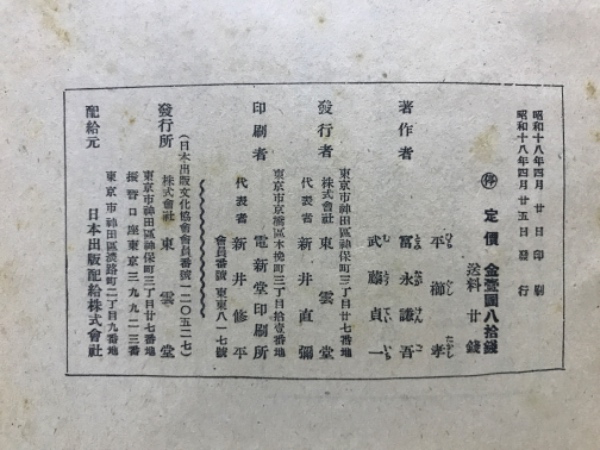 昭和十八年四月 廿日印刷
昭和十八年四月廿五日發行
㊞ 定價 金壹圓八拾錢
送料廿錢
著作者
平櫛孝
富永謙吾
武藤貞一
東京市神田區神保町三丁目廿七番地
發行者 株式會社 東雲堂
代表者 新井直彌
東京市京橋區木挽町三丁目拾壹番地
印刷者 電新堂印刷所
代表者 新井修平
會員番號 東東八一七號
(日本出版文化協會會員番號一二〇五二七)
發行所 株式會社 東雲堂
東京市神田區神保町三丁目廿七番地
振替口座東京三九九二三番
東京市神田區淡路町二丁目九番地
配給元 日本出版配給株式會社